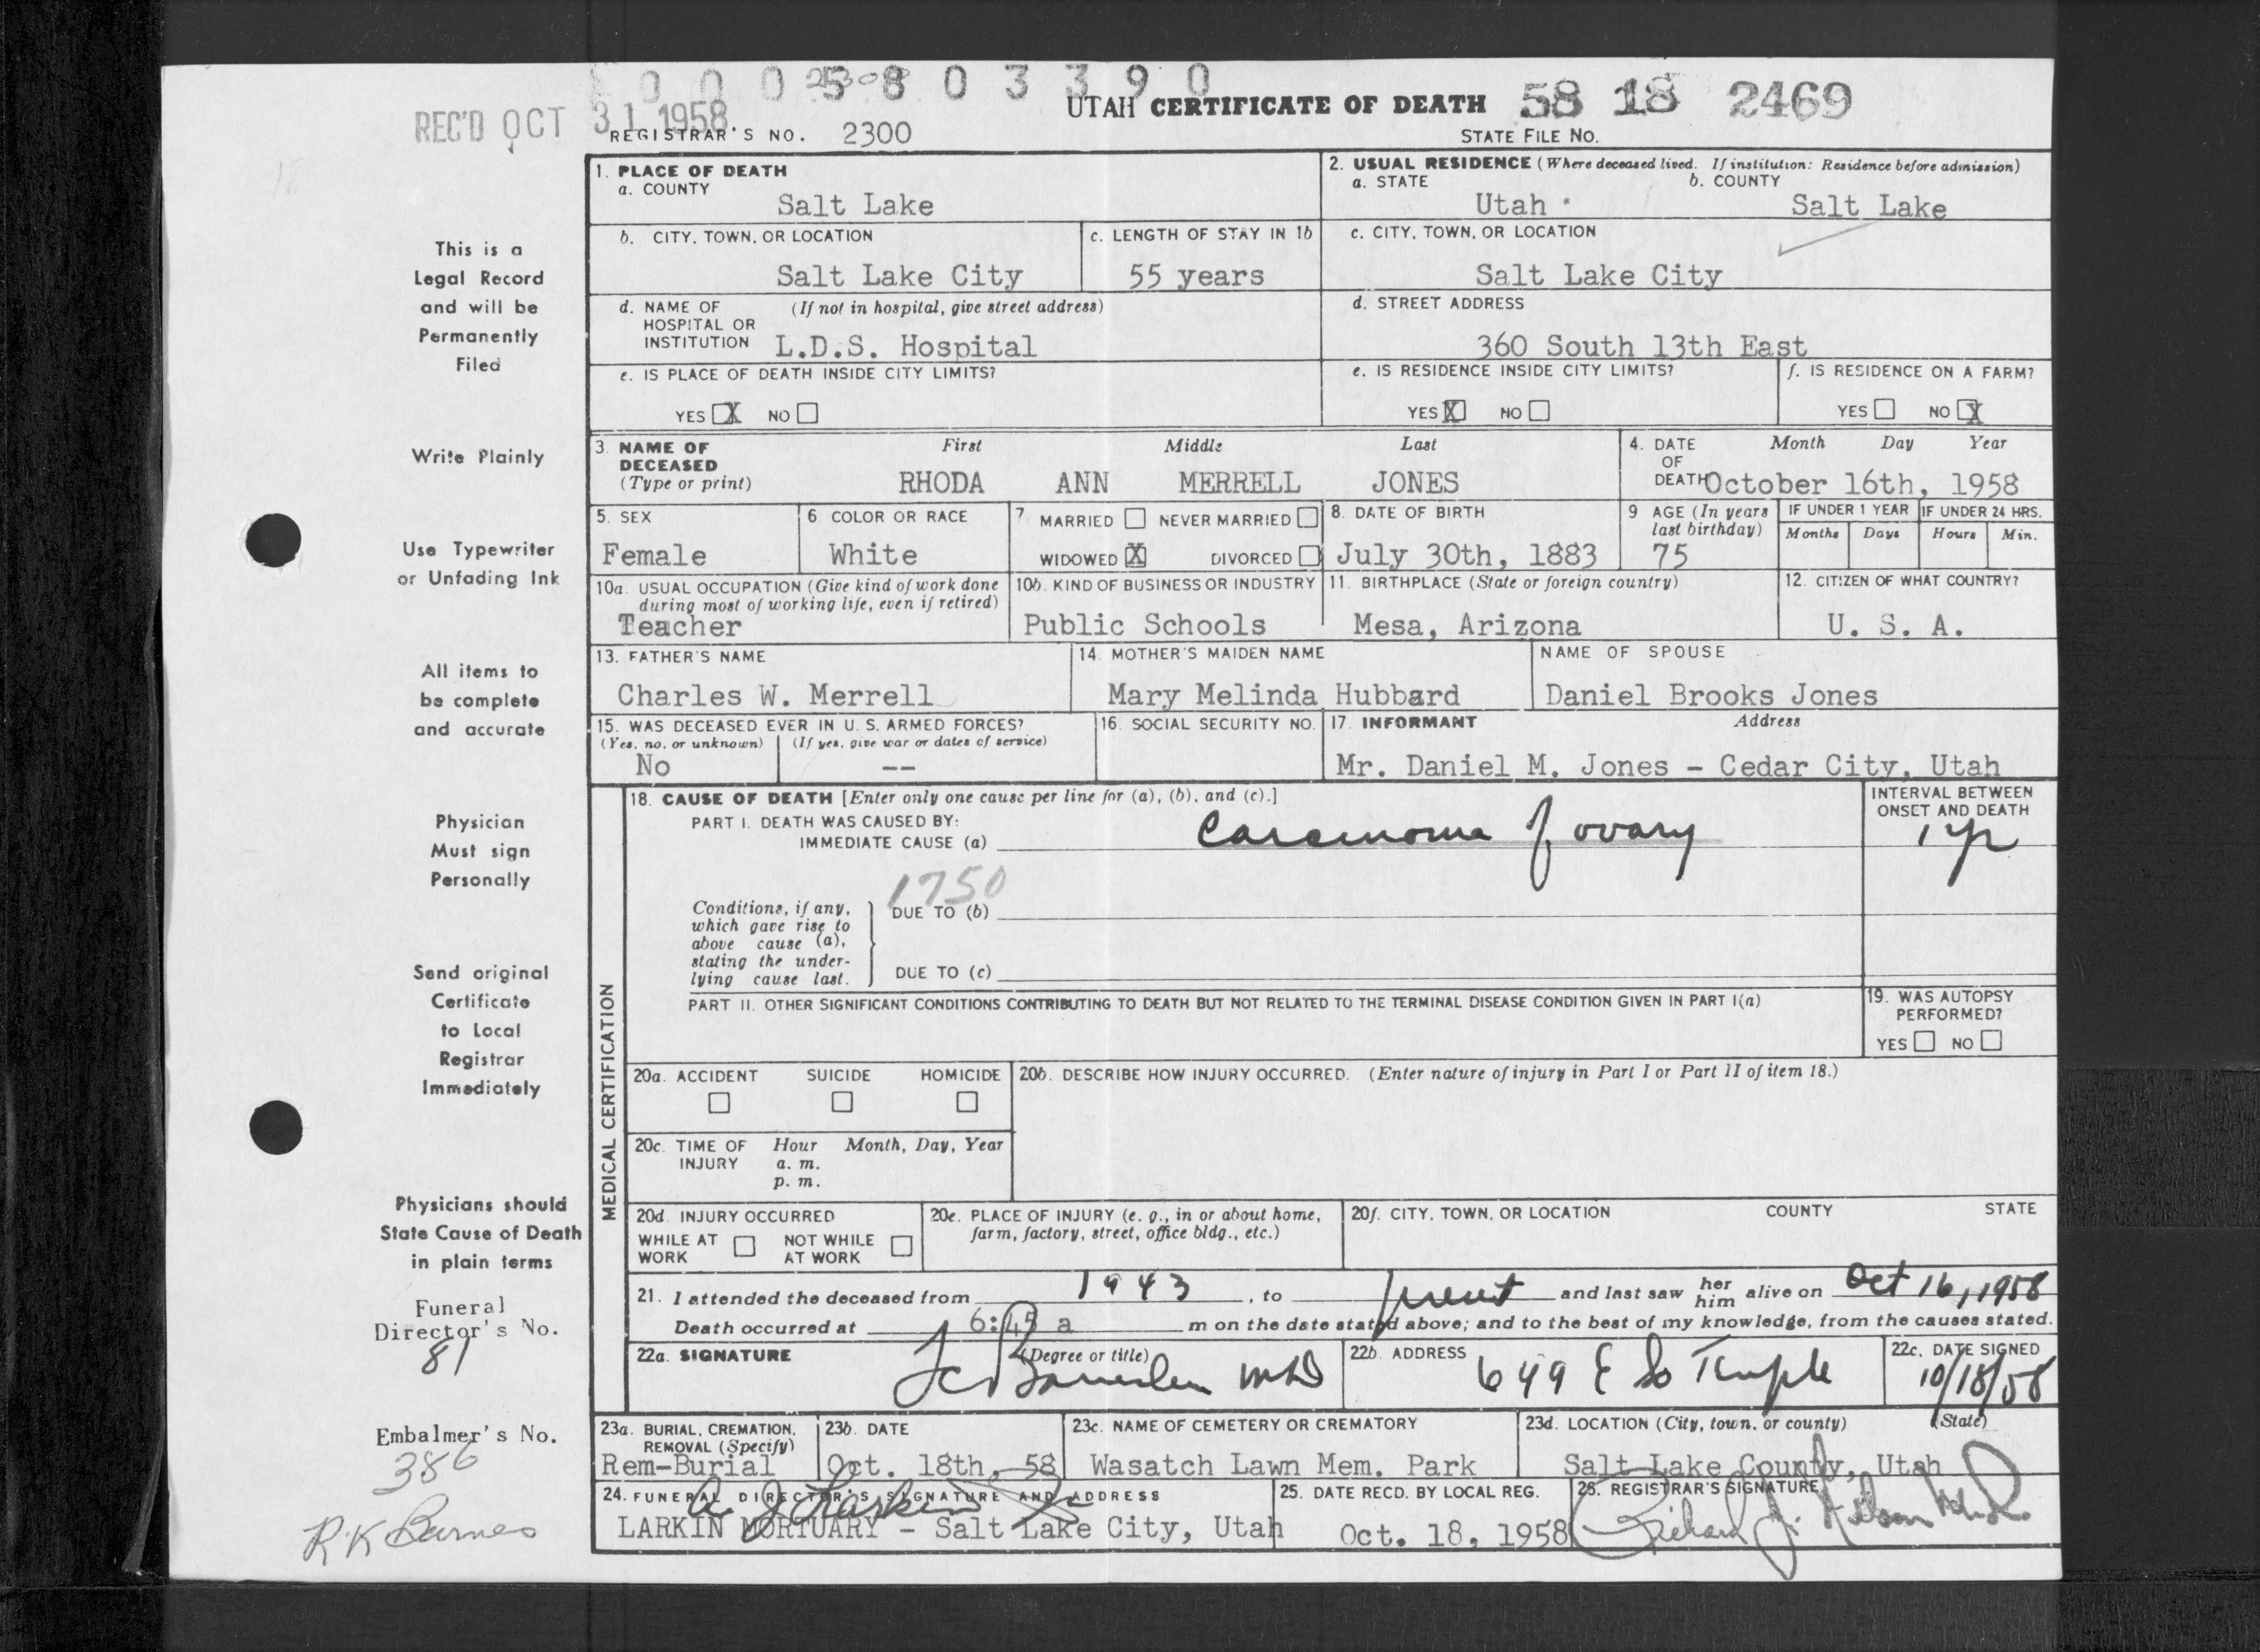 0 0 0 5 8 0 3 3 9 0
UTAH CERTIFICATE OF DEATH 58 18 2469
REC'D OCT 31 1958
REGISTRAR'S NO. 2300 STATE FILE NO.
1. PLACE OF DEATH
a. COUNTY
Salt Lake
2. USUAL RESIDENCE (Where deceased lived. If institution: Residence before admission)
a. STATE b. COUNTY
Utah Salt Lake
b. CITY, TOWN, OR LOCATION
Salt Lake City
c. LENGTH OF STAY IN 1b
55 years
c. CITY, TOWN, OR LOCATION
Salt Lake City
d. NAME OF (If not in hospital, give street address)
HOSPITAL OR
INSTITUTION L.D.S. Hospital
d. STREET ADDRESS
360 South 13th East
e. IS PLACE OF DEATH INSIDE CITY LIMITS?
YES X NO
e. IS RESIDENCE INSIDE CITY LIMITS?
YES X NO
f. IS RESIDENCE ON A FARM?
YES NO X
3. NAME OF First Middle Last
DECEASED
(Type or print) RHODA ANN MERRELL JONES
4. DATE Month Day Year
OF
DEATH October 16th, 1958
5. SEX
Female
6. COLOR OR RACE
White
7. MARRIED NEVER MARRIED
WIDOWED X DIVORCED
8. DATE OF BIRTH
July 30th, 1883
9 AGE (In years
last birthday)
75
IF UNDER 1 YEAR IF UNDER 24 HRS.
Months Days Hours Min.
10a. USUAL OCCUPATION (Give kind of work done
during most of working life, even if retired)
Teacher
10b. KIND OF BUSINESS OR INDUSTRY
Public Schools
11. BIRTHPLACE (State or foreign country)
Mesa, Arizona
12. CITIZEN OF WHAT COUNTRY?
U. S. A.
13. FATHER'S NAME
Charles W. Merrell
14. MOTHER'S MAIDEN NAME
Mary Melinda Hubbard
NAME OF SPOUSE
Daniel Brooks Jones
15. WAS DECEASED EVER IN U. S. ARMED FORCES?
(Yes, no. or unknown) (If yes, give war or dates of service)
No --
16. SOCIAL SECURITY NO.
17. INFORMANT Address
Mr. Daniel M. Jones - Cedar City, Utah
MEDICAL CERTIFICATION
18. CAUSE OF DEATH [Enter only one cause per line for (a), (b), and (c).]
PART I. DEATH WAS CAUSED BY:
IMMEDIATE CAUSE (a) Carcinoma of ovary
INTERVAL BETWEEN
ONSET AND DEATH
1 yr
1750
Conditions, if any,
which gave rise to
above cause (a),
stating the under-
lying cause last.
DUE TO (b)
DUE TO (c)
PART II. OTHER SIGNIFICANT CONDITIONS CONTRIBUTING TO DEATH BUT NOT RELATED TO THE TERMINAL DISEASE CONDITION GIVEN IN PART I(a)
19. WAS AUTOPSY
PERFORMED?
YES NO
20a. ACCIDENT SUICIDE HOMICIDE
20b. DESCRIBE HOW INJURY OCCURRED. (Enter nature of injury in Part I or Part II of item 18.)
20c. TIME OF Hour Month, Day, Year
INJURY a. m.
p. m.
20d. INJURY OCCURRED
WHILE AT NOT WHILE
WORK AT WORK
20e. PLACE OF INJURY (e. g., in or about home,
farm, factory, street, office bldg., etc.)
20f. CITY, TOWN, OR LOCATION COUNTY STATE
21. I attended the deceased from 1943, to present and last saw her him alive on Oct 16, 1958
Death occurred at 6:45 a m on the date stated above; and to the best of my knowledge, from the causes stated.
22a. SIGNATURE (Degree or title)
MD
22b. ADDRESS 649 E So Temple
22c. DATE SIGNED
10/18/58
23a. BURIAL, CREMATION,
REMOVAL (Specify)
Rem-Burial
23b. DATE
Oct. 18th, 58
23c. NAME OF CEMETERY OR CREMATORY
Wasatch Lawn Mem. Park
23d. LOCATION (City, town, or county) (State)
Salt Lake County, Utah
24. FUNERAL DIRECTOR'S SIGNATURE AND ADDRESS
LARKIN MORTUARY - Salt Lake City, Utah
25. DATE RECD. BY LOCAL REG.
Oct. 18, 1958
26. REGISTRAR'S SIGNATURE
Richard J. Nelson
This is a
Legal Record
and will be
Permanently
Filed
Write Plainly
Use Typewriter
or Unfading Ink
All items to
be complete
and accurate
Physician
Must sign
Personally
Send original
Certificate
to Local
Registrar
Immediately
Physicians should
State Cause of Death
in plain terms
Funeral
Director's No.
81
Embalmer's No.
386
R.K Barnes